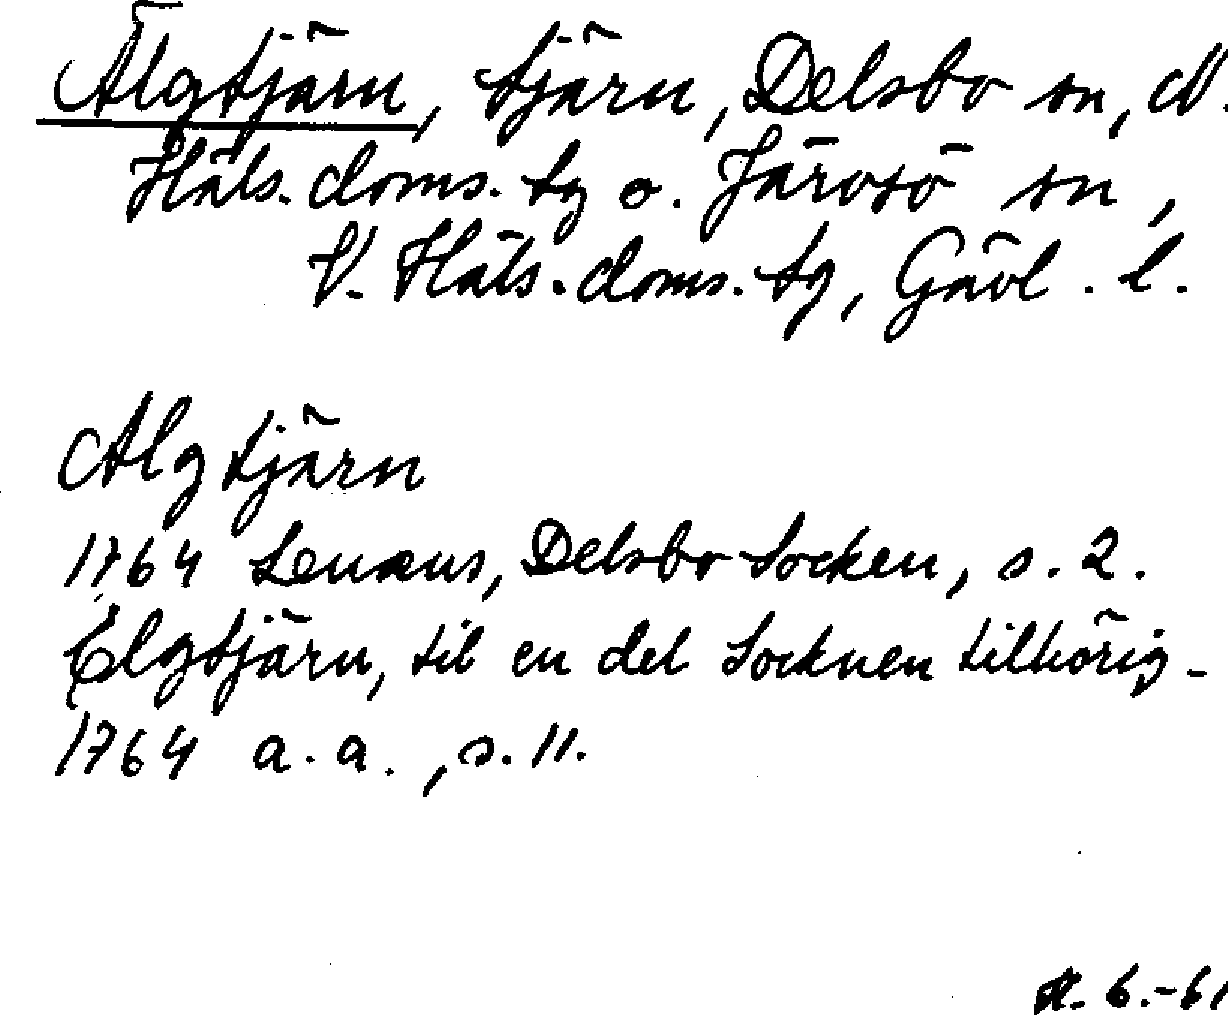 Älgtjärn, tjärn, Delsbo sn, N.
Häls. doms. tg o. Järvsö sn,
V. Häls. doms. tg, Gävl. l.
Algtjärn
1764 Lenæus, Delsbo Socken, s. 2.
Elgtjärn, til en del Socknen tilhörig -
1764 a. a., s. 11.
6.-61